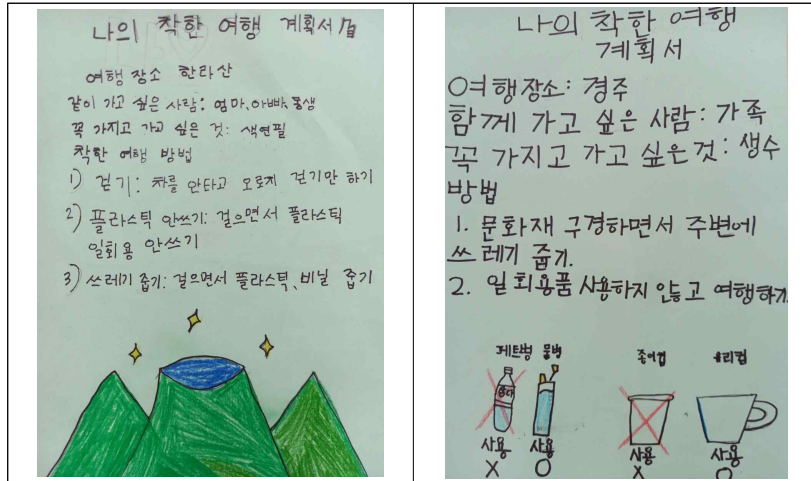 나의 착한 여행 계획서
여행 장소 한라산
같이 가고 싶은 사람: 엄마, 아빠, 동생
꼭 가지고 가고 싶은 것: 색연필
착한 여행 방법
1) 걷기: 차를 안타고 오로지 걷기만 하기
2) 플라스틱 안쓰기: 걸으면서 플라스틱
일회용 안쓰기
3) 쓰레기 줍기: 걸으면서 플라스틱, 비닐 줍기
나의 착한 여행
계획서
여행장소: 경주
함께 가고 싶은 사람: 가족
꼭 가지고 가고 싶은것: 생수
방법
1. 문화재 구경하면서 주변에
쓰레기 줍기.
2. 일회용품 사용하지 않고 여행하기
페트병 물병 종이컵 유리컵
사용 사용 사용 사용
X O X O